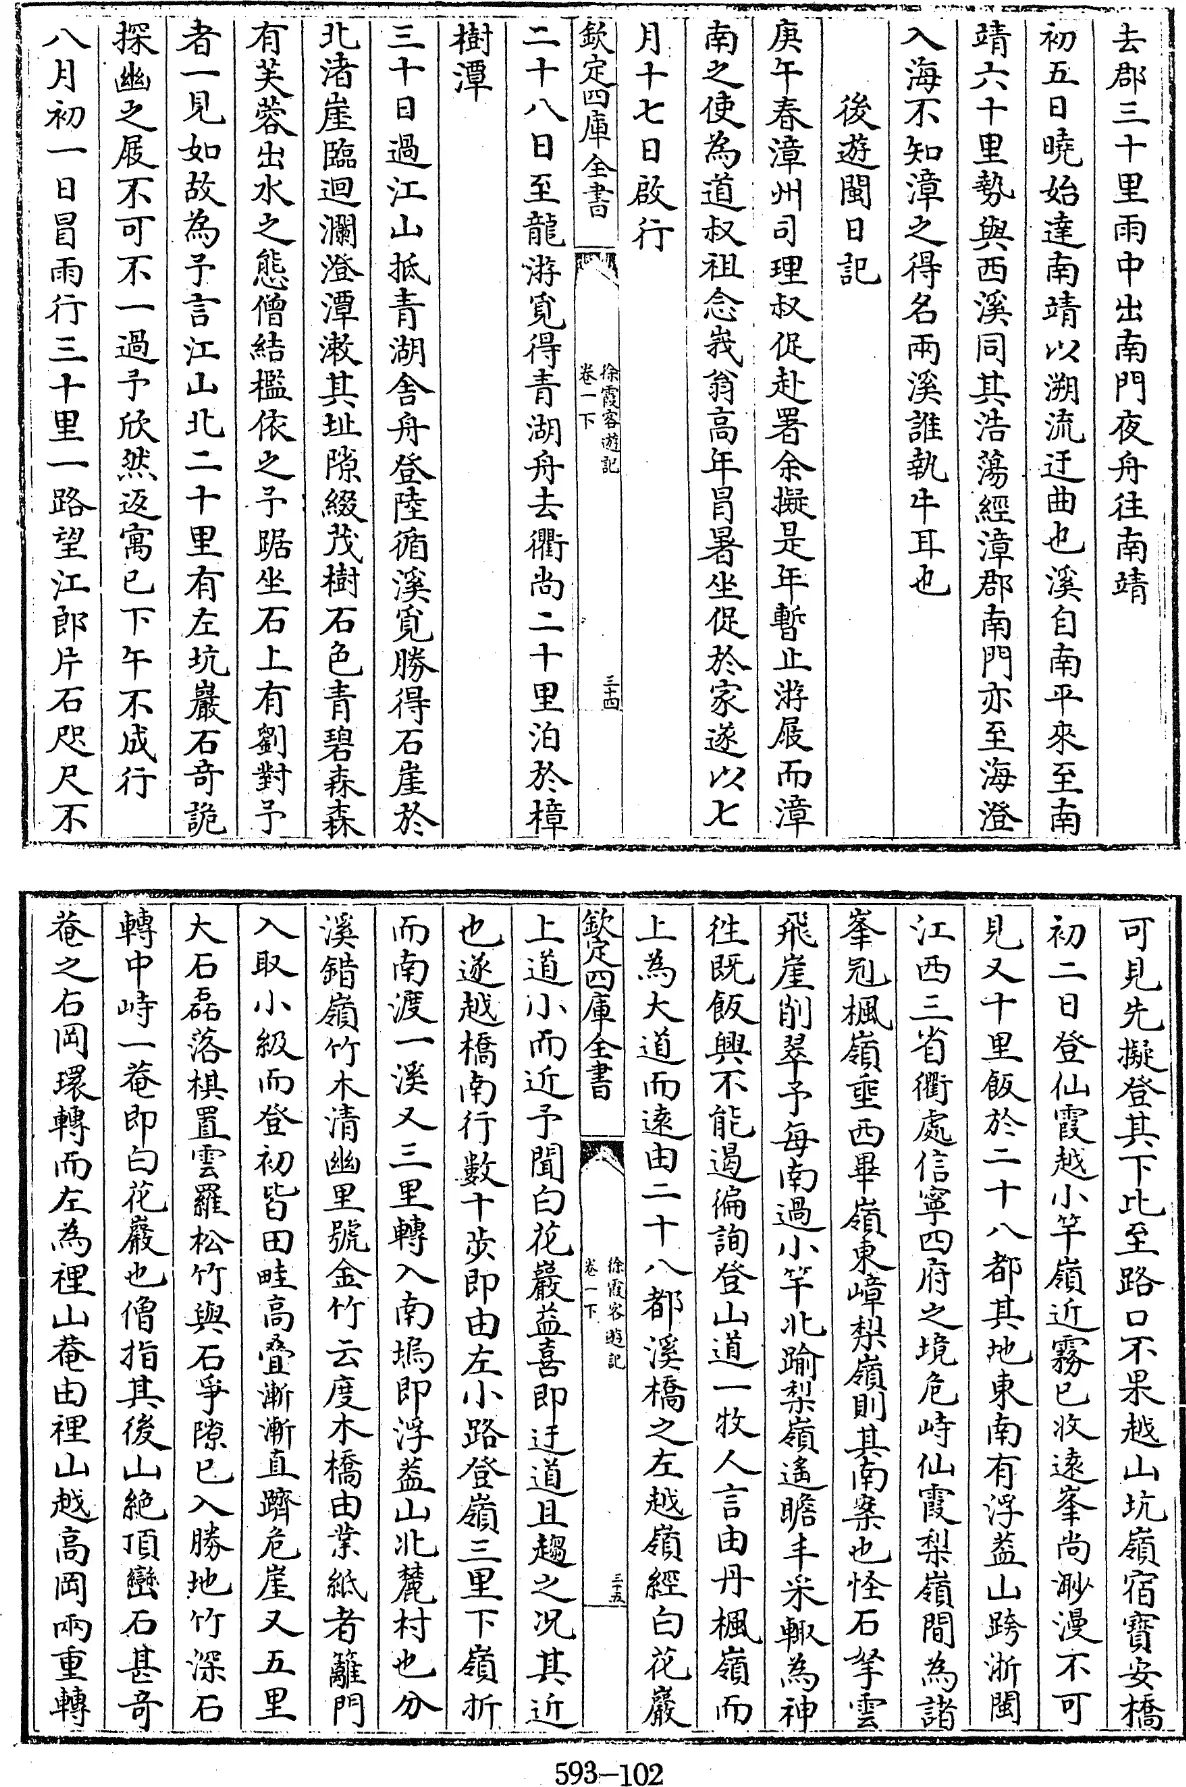 去郡三十里雨中出南門夜舟往南靖
初五日曉始達南靖以溯流迂曲也溪自南平來至南
靖六十里勢與西溪同其浩蕩經漳郡南門亦至海澄
入海不知漳之得名兩溪誰執牛耳也
後遊閩日記
庚午春漳州司理叔促赴署余擬是年暫止游屐而漳
南之使為道叔祖念莪翁高年冐暑坐促於家遂以七
月十七日啟行
欽定四庫全書
徐霞客遊記
卷一下
三十四
二十八日至龍游覓得青湖舟去衢尚二十里泊於樟
樹潭
三十日過江山抵青湖舎舟登陸循溪覓勝得石崖於
北渚崖臨迴瀾澄潭漱其址隙綴茂樹石色青碧森森
有芙蓉出水之態僧結檻依之予踞坐石上有劉對予
者一見如故為予言江山北二十里有左坑巖石奇詭
探幽之屐不可不一過予欣然返寓已下午不成行
八月初一日冒雨行三十里一路望江郎片石咫尺不
可見先擬登其下比至路口不果越山坑嶺宿寶安橋
初二日登仙霞越小竿嶺近霧已收逺峯尚渺漫不可
見又十里飯於二十八都其地東南有浮葢山跨浙閩
江西三省衢處信寧四府之境危峙仙霞梨嶺間為諸
峯冠楓嶺亜西畢嶺東嶂梨嶺則其南案也怪石拏雲
飛崖削翠予每南過小竿北踰梨嶺遙瞻丰采輙為神
徃既飯興不能遏徧詢登山道一牧人言由丹楓嶺而
上為大道而逺由二十八都溪橋之左越嶺經白花巖
欽定四庫全書
徐霞客遊記
卷一下
三十五
上道小而近予聞白花巖益喜即迂道且趨之况其近
也遂越橋南行數十歩即由左小路登嶺三里下嶺折
而南渡一溪又三里轉入南塢即浮葢山北麓村也分
溪錯嶺竹木清幽里號金竹云度木橋由業紙者籬門
入取小級而登初皆田畦高叠漸漸直躋危崖又五里
大石磊落棋置雲羅松竹與石爭隙已入勝地竹深石
轉中峙一菴即白花巖也僧指其後山絶頂巒石甚奇
菴之右岡環轉而左為裡山菴由裡山越高岡兩重轉
593-102